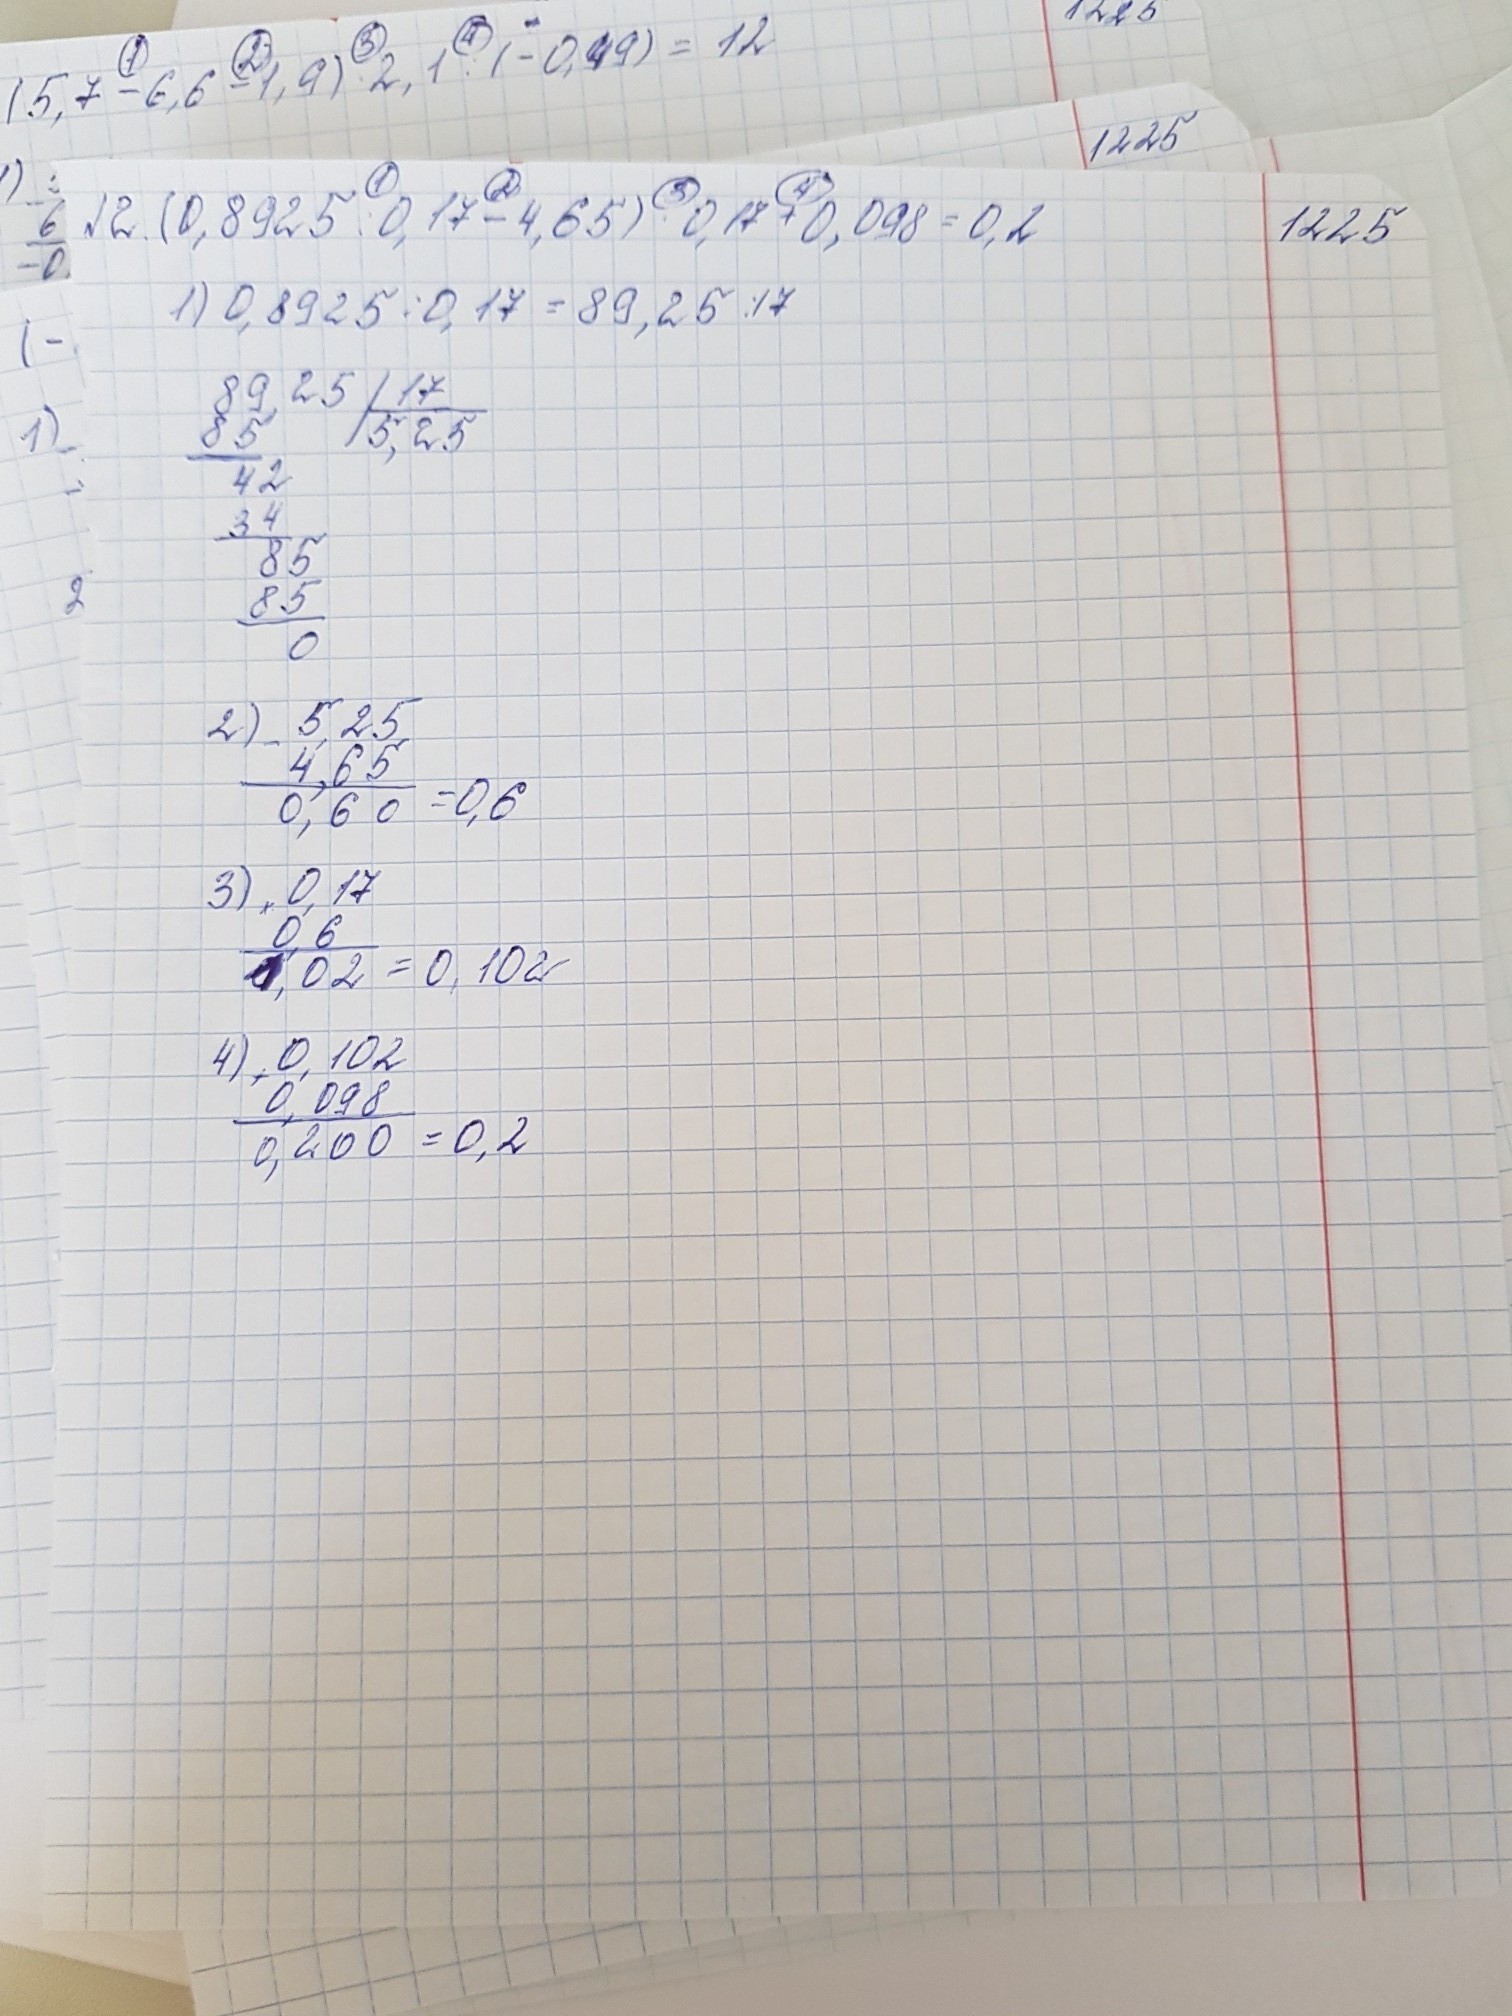 1225
(5,7 - 6,6 - 1,9) · 2,1 : (-0,49) = 12
1225
№2. (0,8925 : 0,17 - 4,65) · 0,17 + 0,098 = 0,2
1225
1) 0,8925 : 0,17 = 89,25 : 17
89,25 | 17
85 5,25
42
34
85
85
0
2) - 5,25
4,65
0,60 = 0,6
3) × 0,17
0,6
,02 = 0,102
4) + 0,102
0,098
0,200 = 0,2
6
-0
(-
1)
2